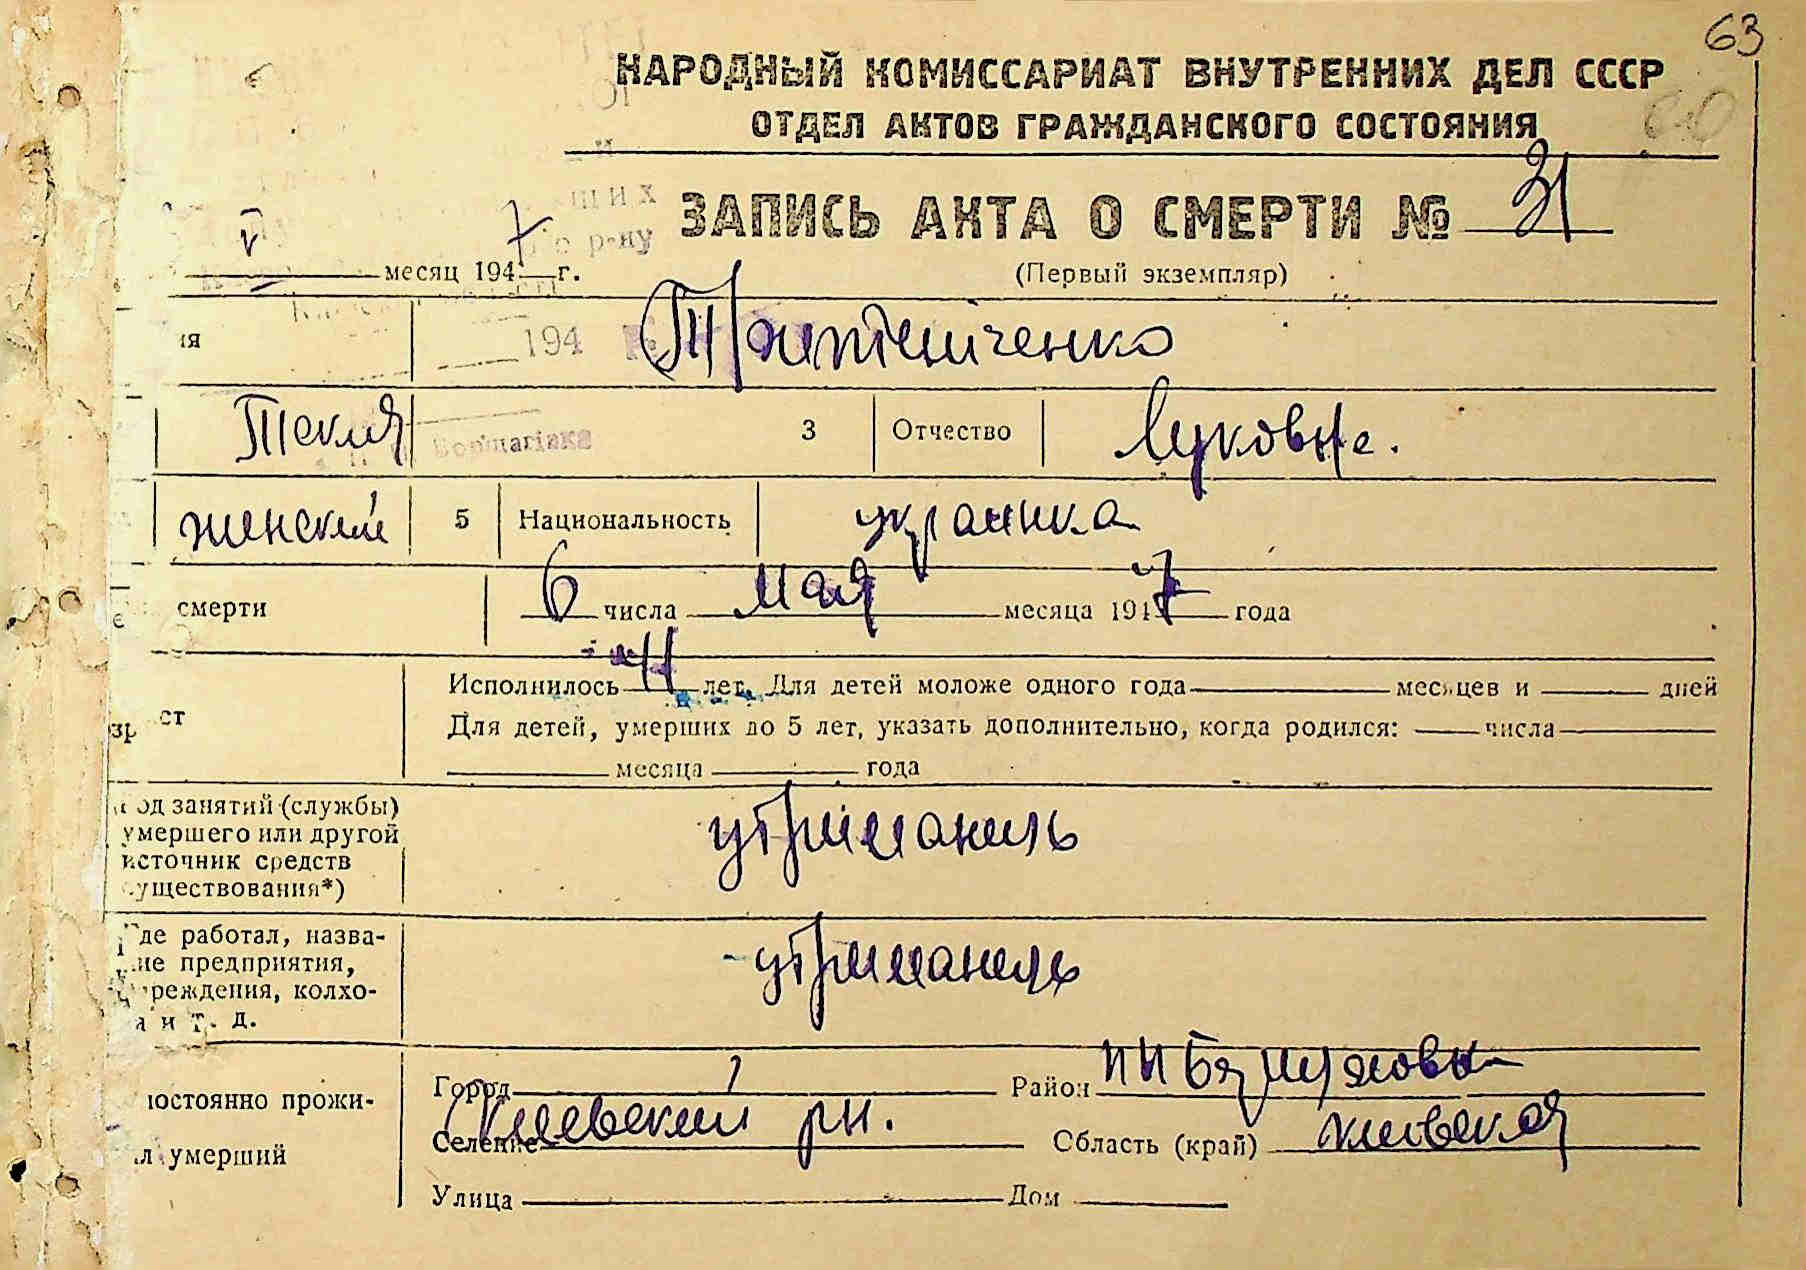 63
НАРОДНЫЙ КОМИССАРИАТ ВНУТРЕННИХ ДЕЛ СССР
ОТДЕЛ АКТОВ ГРАЖДАНСКОГО СОСТОЯНИЯ
ЗАПИСЬ АКТА О СМЕРТИ № 31
V месяц 1947 г.
(Первый экземпляр)
ия
194
Текля 3 Отчество Луковна.
Борщагівка
женский 5 Национальность украинка
смерти 6 числа мая месяца 1947 года
Исполнилось лет. Для детей моложе одного года месяцев и дней
ст
зр
Для детей, умерших до 5 лет, указать дополнительно, когда родился: числа
месяца года
од занятий (службы)
умершего или другой
источник средств
существования*)
утриманиль
де работал, назва-
ие предприятия,
реждения, колхо-
а и т. д.
утриманиль
постоянно прожи-
л умерший
Город Район
Киевский рн.
Селение Область (край) киевская
Улица Дом